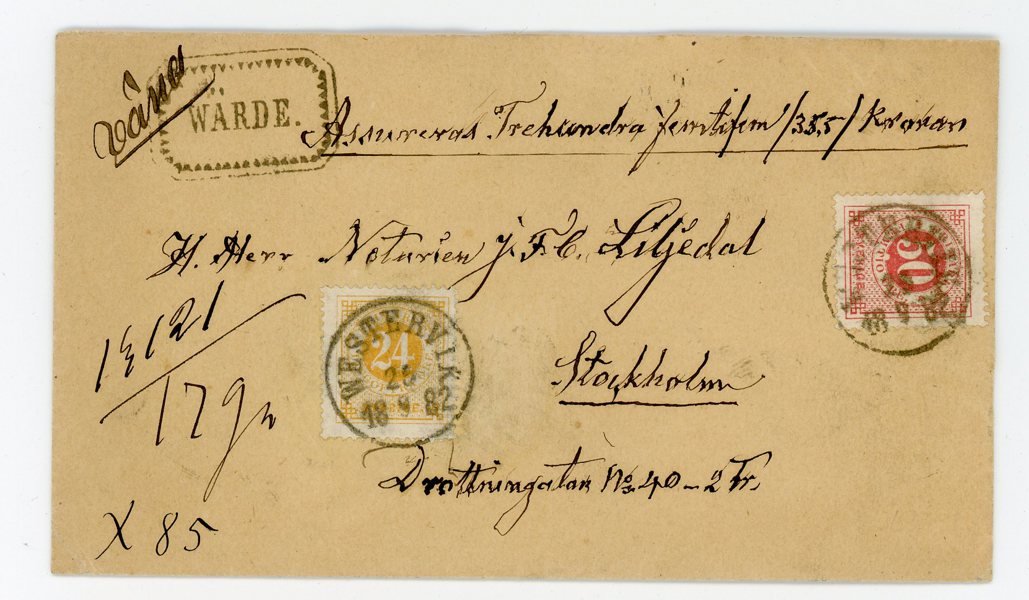 Wärde
WÄRDE.
Assureras Trehundra femtifem /355/ Kronor
H. Herr Notarien J. F. C. Liljedal
Stockholm
Drottningatan No 40 - 2 Tr.
121
17 gr
X 85
24
WESTERVIK
18 9 82
50
TIO
18 9 82